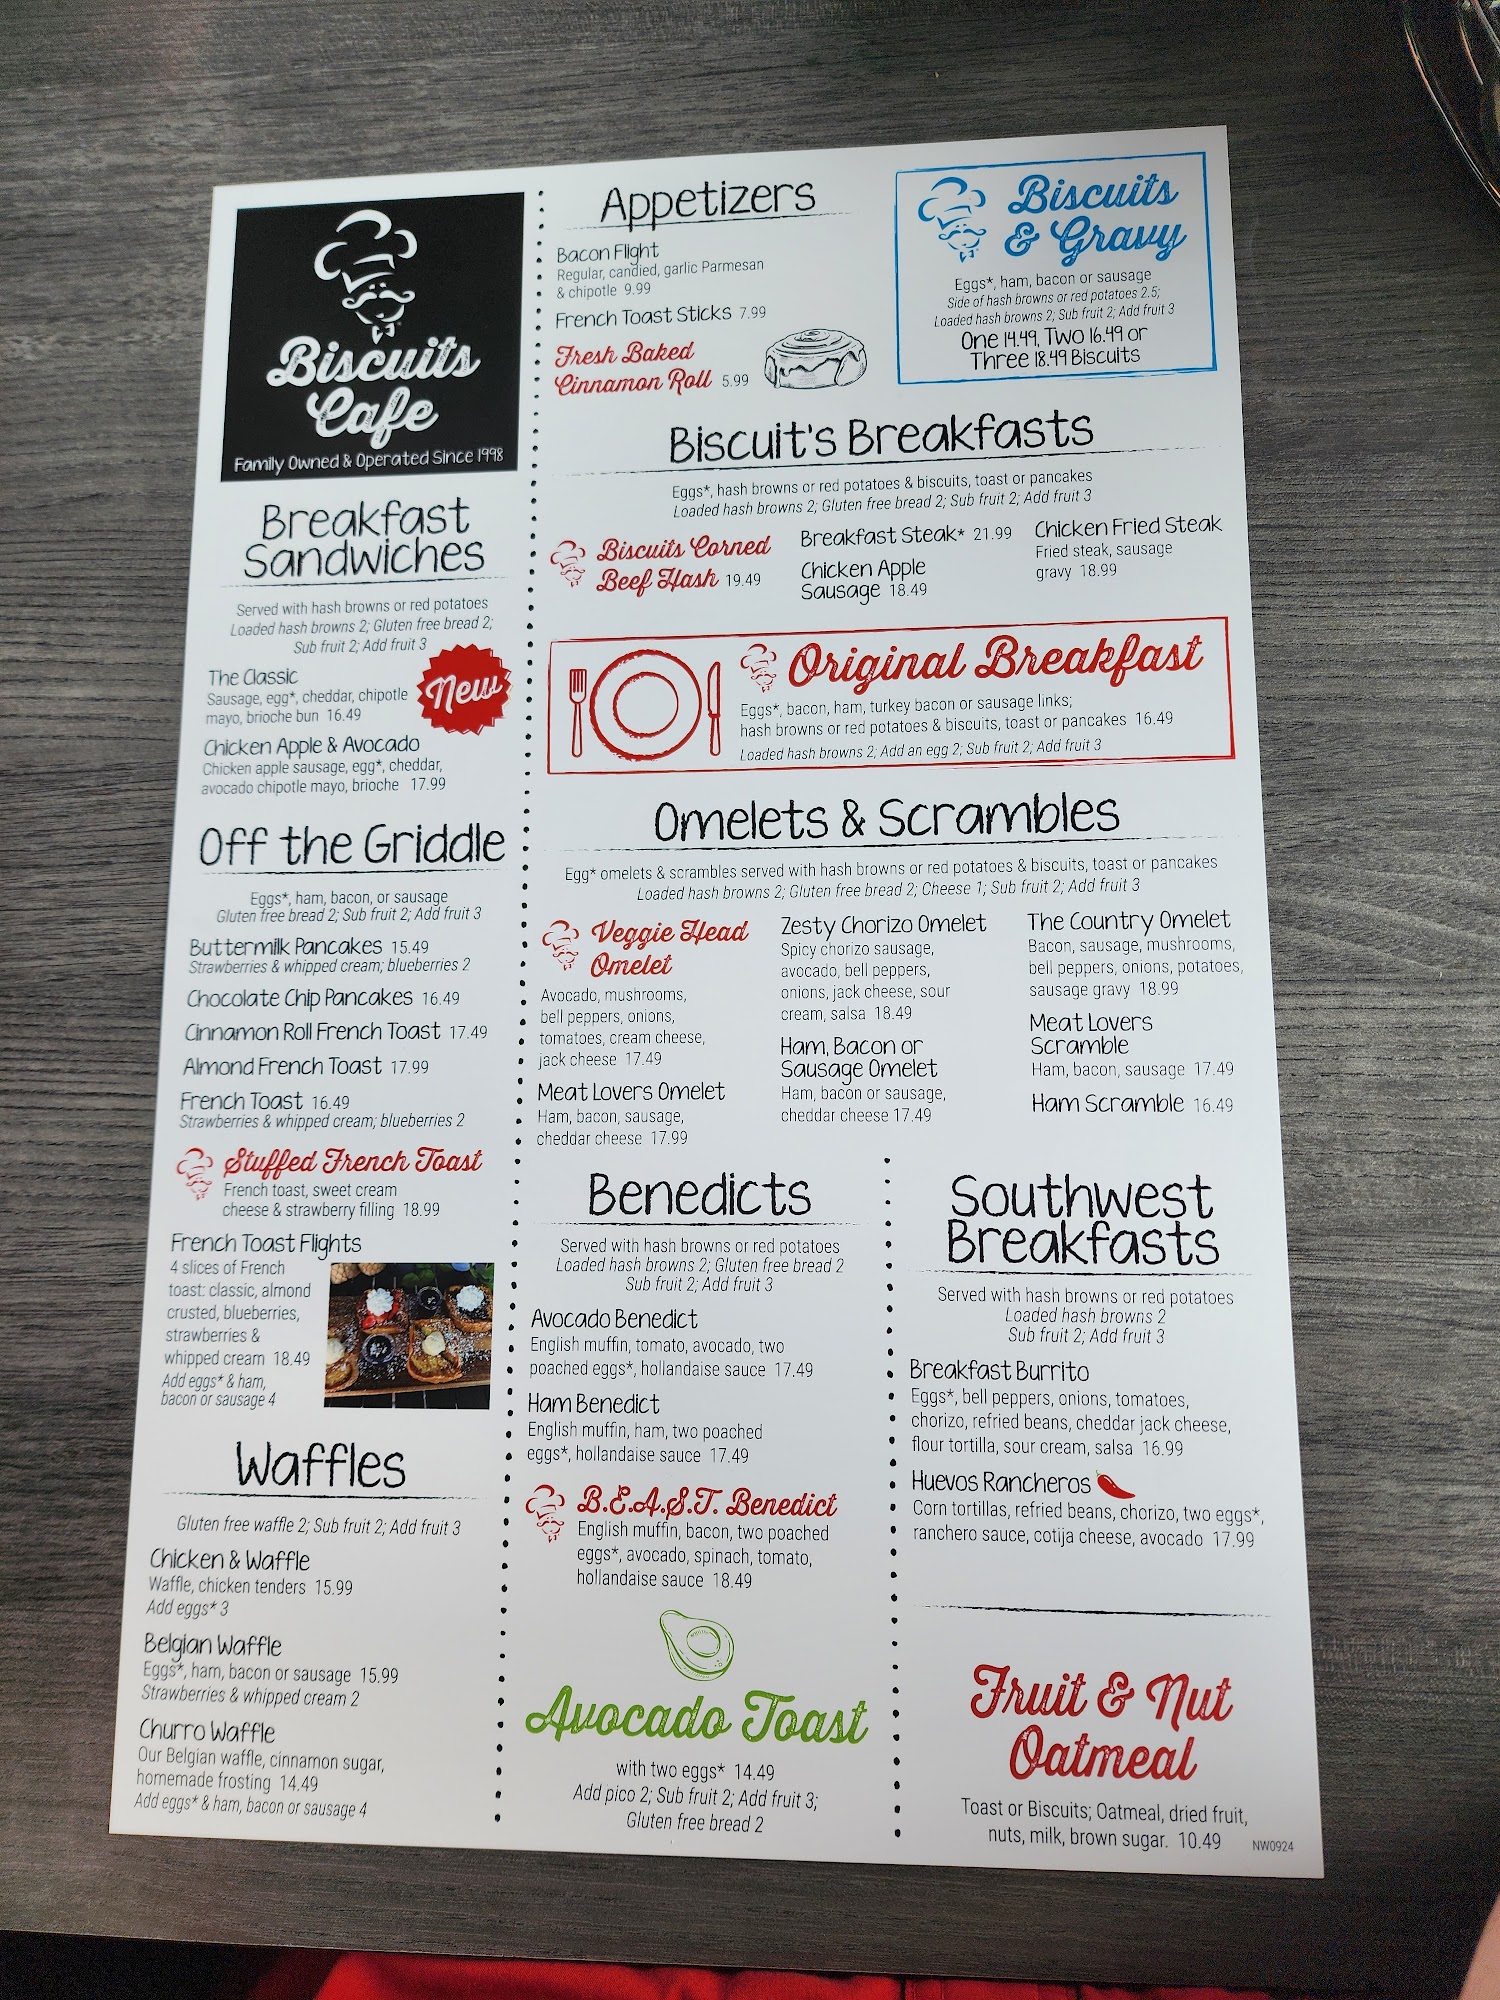 Biscuits
Cafe
Family Owned & Operated Since 1998
Breakfast
Sandwiches
Served with hash browns or red potatoes
Loaded hash browns 2; Gluten free bread 2;
Sub fruit 2; Add fruit 3
The Classic
Sausage, egg*, cheddar, chipotle
mayo, brioche bun 16.49
New
Chicken Apple & Avocado
Chicken apple sausage, egg*, cheddar,
avocado chipotle mayo, brioche 17.99
Off the Griddle
Eggs*, ham, bacon, or sausage
Gluten free bread 2; Sub fruit 2; Add fruit 3
Buttermilk Pancakes 15.49
Strawberries & whipped cream; blueberries 2
Chocolate Chip Pancakes 16.49
Cinnamon Roll French Toast 17.49
Almond French Toast 17.99
French Toast 16.49
Strawberries & whipped cream; blueberries 2
Stuffed French Toast
French toast, sweet cream
cheese & strawberry filling 18.99
French Toast Flights
4 slices of French
toast: classic, almond
crusted, blueberries,
strawberries &
whipped cream 18.49
Add eggs* & ham,
bacon or sausage 4
Waffles
Gluten free waffle 2; Sub fruit 2; Add fruit 3
Chicken & Waffle
Waffle, chicken tenders 15.99
Add eggs* 3
Belgian Waffle
Eggs*, ham, bacon or sausage 15.99
Strawberries & whipped cream 2
Churro Waffle
Our Belgian waffle, cinnamon sugar,
homemade frosting 14.49
Add eggs* & ham, bacon or sausage 4
Appetizers
Bacon Flight
Regular, candied, garlic Parmesan
& chipotle 9.99
French Toast Sticks 7.99
Fresh Baked
Cinnamon Roll 5.99
Biscuits
& Gravy
Eggs*, ham, bacon or sausage
Side of hash browns or red potatoes 2.5;
Loaded hash browns 2; Sub fruit 2; Add fruit 3
One 14.49, Two 16.49 or
Three 18.49 Biscuits
Biscuit's Breakfasts
Eggs*, hash browns or red potatoes & biscuits, toast or pancakes
Loaded hash browns 2; Gluten free bread 2; Sub fruit 2; Add fruit 3
Biscuits Corned
Beef Hash 19.49
Breakfast Steak* 21.99
Chicken Apple
Sausage 18.49
Chicken Fried Steak
Fried steak, sausage
gravy 18.99
Original Breakfast
Eggs*, bacon, ham, turkey bacon or sausage links;
hash browns or red potatoes & biscuits, toast or pancakes 16.49
Loaded hash browns 2; Add an egg 2; Sub fruit 2; Add fruit 3
Omelets & Scrambles
Egg* omelets & scrambles served with hash browns or red potatoes & biscuits, toast or pancakes
Loaded hash browns 2; Gluten free bread 2; Cheese 1; Sub fruit 2; Add fruit 3
Veggie Head
Omelet
Avocado, mushrooms,
bell peppers, onions,
tomatoes, cream cheese,
jack cheese 17.49
Meat Lovers Omelet
Ham, bacon, sausage,
cheddar cheese 17.99
Zesty Chorizo Omelet
Spicy chorizo sausage,
avocado, bell peppers,
onions, jack cheese, sour
cream, salsa 18.49
Ham, Bacon or
Sausage Omelet
Ham, bacon or sausage,
cheddar cheese 17.49
The Country Omelet
Bacon, sausage, mushrooms,
bell peppers, onions, potatoes,
sausage gravy 18.99
Meat Lovers
Scramble
Ham, bacon, sausage 17.49
Ham Scramble 16.49
Benedicts
Served with hash browns or red potatoes
Loaded hash browns 2; Gluten free bread 2
Sub fruit 2; Add fruit 3
Avocado Benedict
English muffin, tomato, avocado, two
poached eggs*, hollandaise sauce 17.49
Ham Benedict
English muffin, ham, two poached
eggs*, hollandaise sauce 17.49
B.E.A.S.T. Benedict
English muffin, bacon, two poached
eggs*, avocado, spinach, tomato,
hollandaise sauce 18.49
Avocado Toast
with two eggs* 14.49
Add pico 2; Sub fruit 2; Add fruit 3;
Gluten free bread 2
Southwest
Breakfasts
Served with hash browns or red potatoes
Loaded hash browns 2
Sub fruit 2; Add fruit 3
Breakfast Burrito
Eggs*, bell peppers, onions, tomatoes,
chorizo, refried beans, cheddar jack cheese,
flour tortilla, sour cream, salsa 16.99
Huevos Rancheros
Corn tortillas, refried beans, chorizo, two eggs*,
ranchero sauce, cotija cheese, avocado 17.99
Fruit & Nut
Oatmeal
Toast or Biscuits; Oatmeal, dried fruit,
nuts, milk, brown sugar. 10.49
NW0924